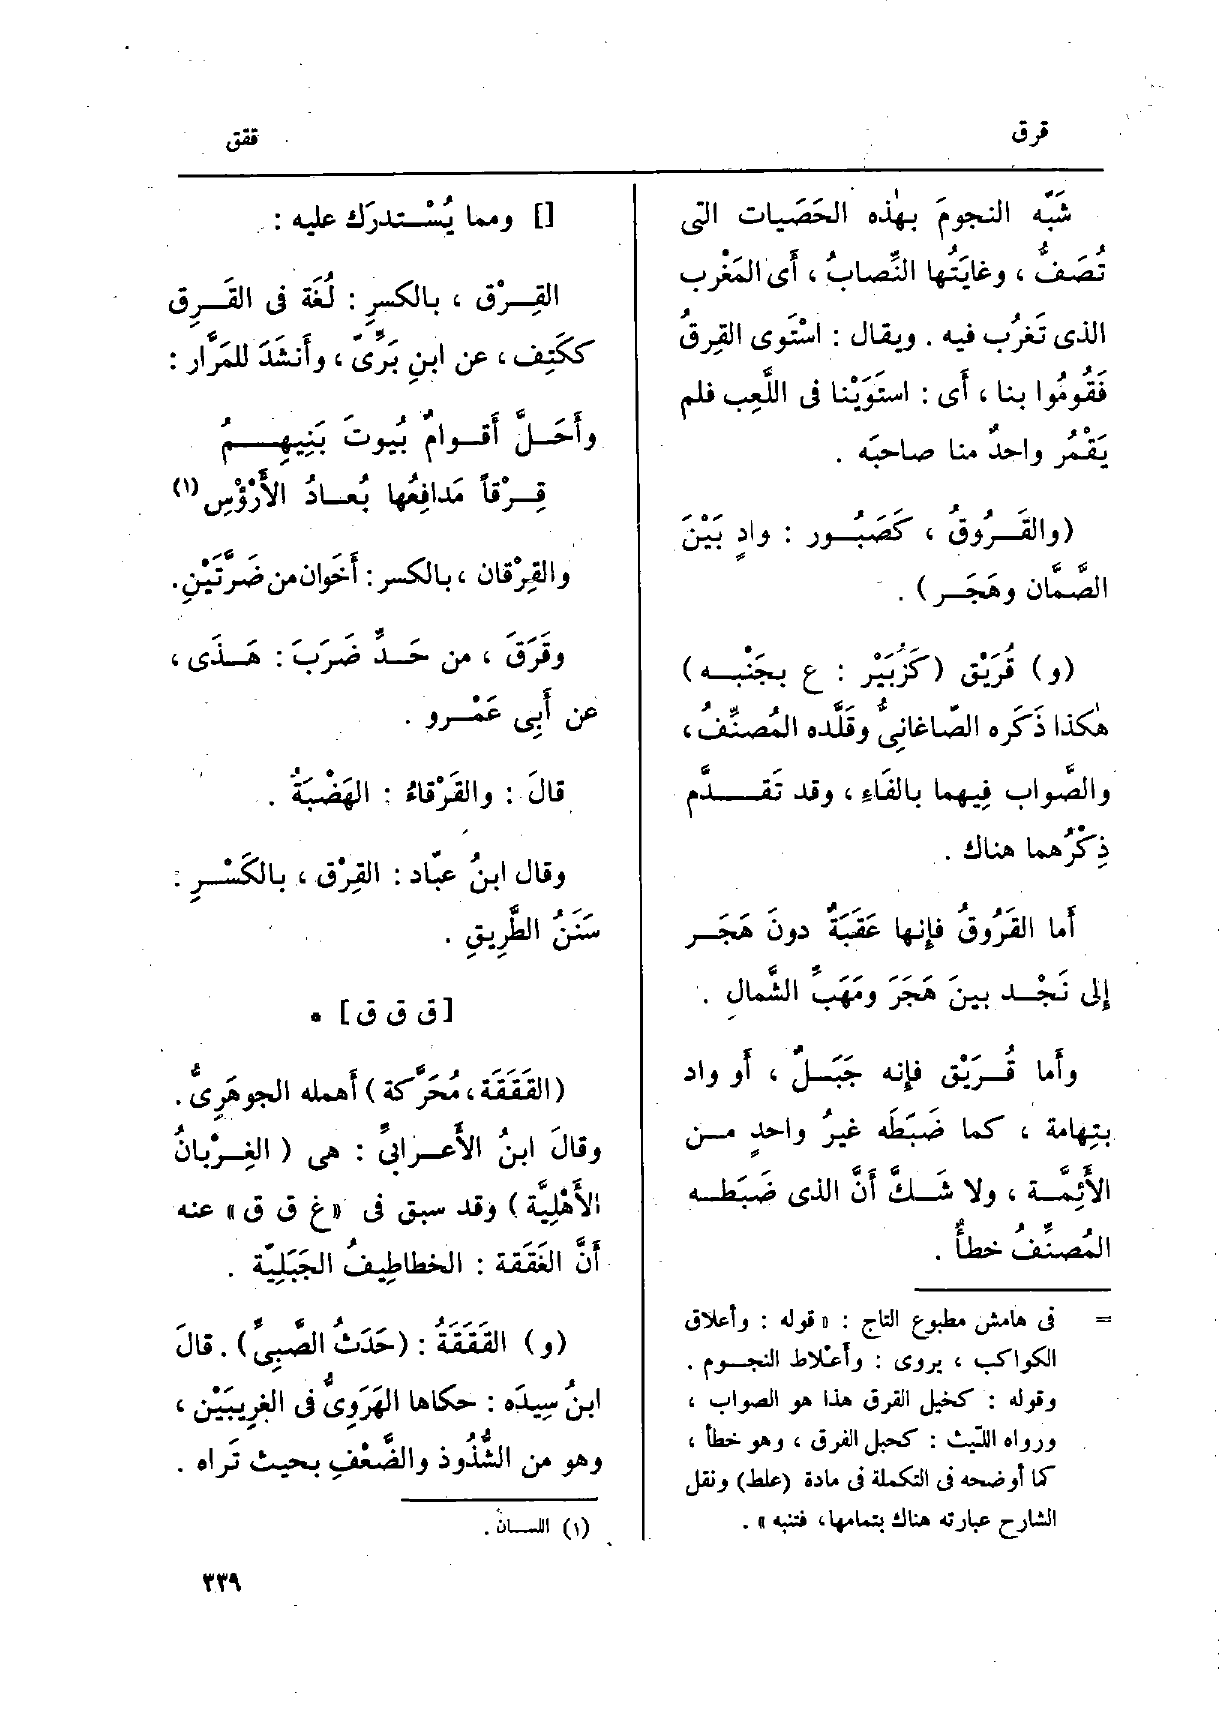 قرق
ققق
شَبَّه النجومَ بهٰذه الحَصَيات التى
تُصَفُّ ، وغايَتُها النِّصابُ ، أَى المَغْرِب
الذى تَغرُب فيه . ويقال : اسْتَوى القِرقُ
فَقُومُوا بنا ، أَى : استَوَيْنا فى اللَّعِب فلم
يَقْمُر واحدٌ منا صاحبَه .
(والقَرُوقُ ، كَصَبُور : وادٍ بَيْنَ
الصَّمَّان وهَجَر) .
(و) قُرَيْق (كَزُبَيْر : ع بجَنْبه)
هٰكذا ذَكَره الصّاغانِىُّ وقَلَّده المُصنِّفُ ،
والصَّواب فِيهما بالفَاءِ ، وقد تَقَدَّم
ذِكْرُهما هناك .
أَما القَرُوقُ فإِنها عَقَبَةٌ دونَ هَجَر
إِلى نَجْد بينَ هَجَرَ ومَهَبِّ الشَّمال .
وأَما قُرَيْق فإِنه جَبَلٌ ، أَو واد
بتِهامة ، كما ضَبَطَه غيرُ واحدٍ من
الأَئِمَّة ، ولا شَكَّ أَنَّ الذى ضَبَطه
المُصنِّفُ خطأٌ .
= فى هامش مطبوع التاج : « قوله : وأعلاق
الكواكب ، يروى : وأعْلاط النجوم .
وقوله : كخيل القرق هذا هو الصواب ،
ورواه الليّث : كحبل الفرق ، وهو خطأ ،
كما أوضحه فى التكملة فى مادة (علط) ونقل
الشارح عبارته هناك بتمامها، فتنبه » .
[] ومما يُسْتدرَك عليه :
القِرْق ، بالكسرِ : لُغَة فى القَرِق
ككَتِف ، عن ابنِ بَرِّىّ ، وأَنشَدَ للمَرَّار :
وأَحَلَّ أَقوامٌ بُيوتَ بَنِيهِمُ
قِرْقاً مَدافِعُها بُعادُ الأَرْؤُسِ (١)
والقِرْقان ، بالكسر : أَخَوان من ضَرَّتَيْنِ .
وقَرَقَ ، من حَدِّ ضَرَبَ : هَذَى ،
عن أَبِى عَمْرو .
قالَ : والقَرْقاءُ : الهَضْبَةُ .
وقال ابنُ عبّاد : القِرْق ، بالكَسْرِ :
سَنَنُ الطَّرِيقِ .
[ق ق ق] *
(القَقَقَة ، مُحَرَّكة) أَهمله الجوهَرِىُّ .
وقالَ ابنُ الأَعرابىِّ : هى (الغِرْبانُ
الأَهْلِيَّة) وقد سبق فى «غ ق ق» عنه
أَنَّ الغَقَقة : الخطاطِيفُ الجَبَلِيّة .
(و) القَقَقَةُ : (حَدَثُ الصَّبِىِّ) . قالَ
ابنُ سِيدَه : حكاها الهَرَوِىُّ فى الغرِيبَيْن ،
وهو من الشُّذُوذ والضَّعْفِ بحيث تَراه .
(١) اللسان .
٣٣٩